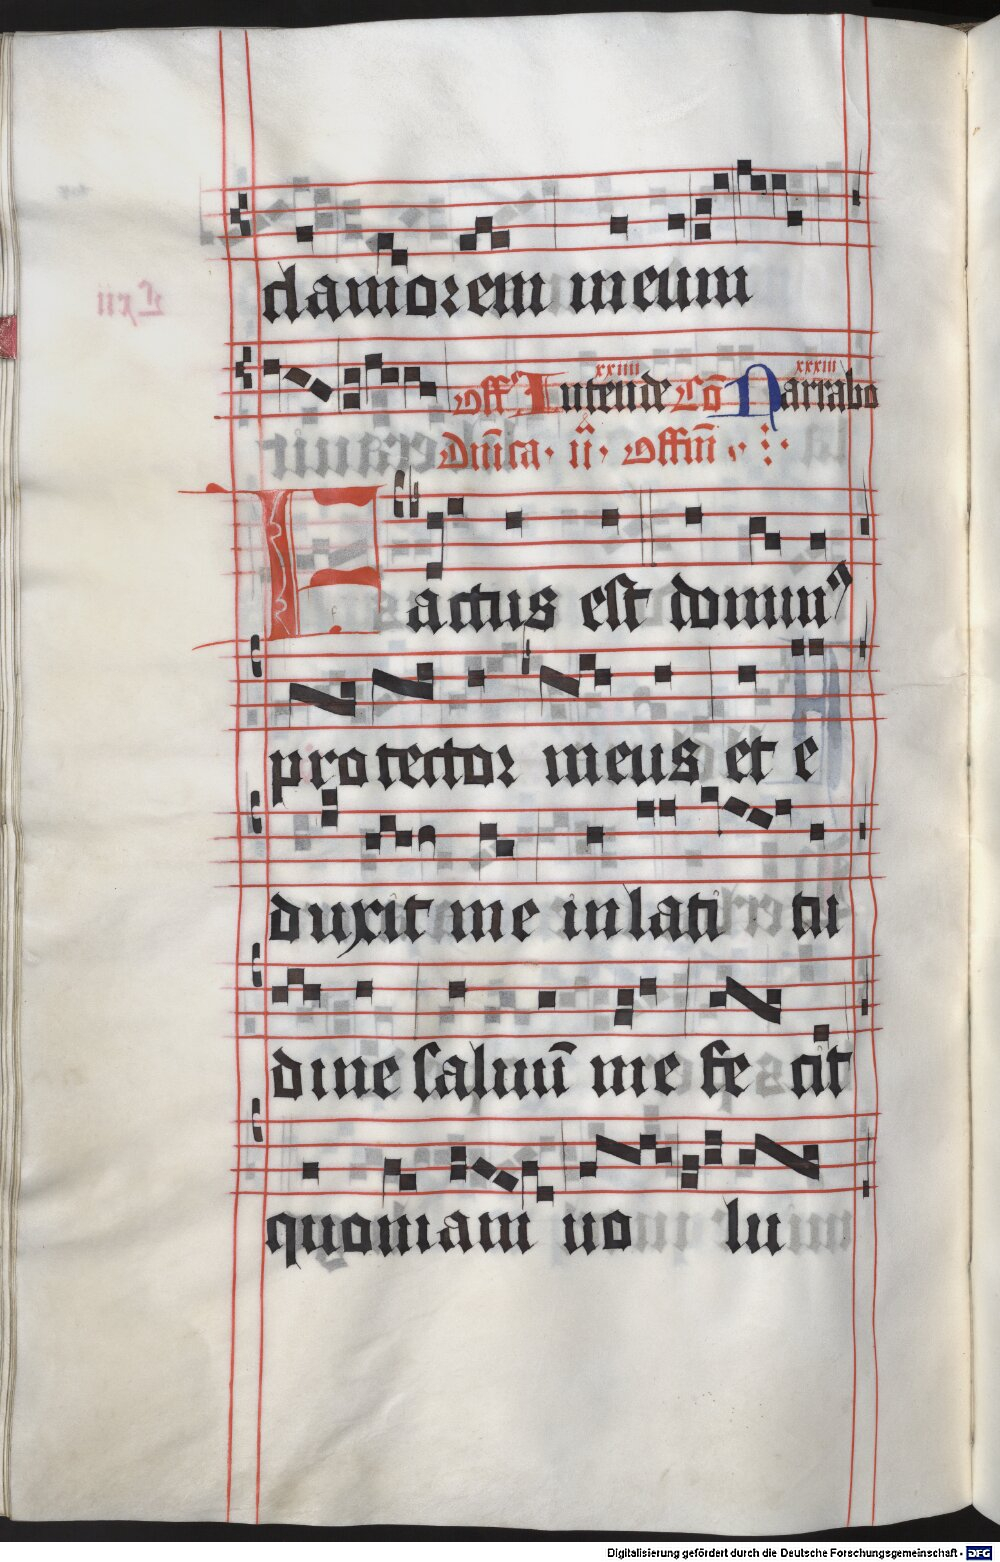 clamorem meum
xxiiii xxxiii
Off Intende Cō Narrabo
Dnīca · ii · Offm̄
Factus est dominꝰ
protector meus et e
duxit me in lati tu
dine saluū me fe cit
quoniam uo lu
Digitalisierung gefördert durch die Deutsche Forschungsgemeinschaft - DFG